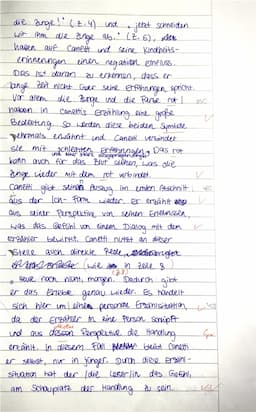 die Zunge!" (Z. 4) und „jetzt schneiden
wir ihm die Zunge ab." (Z. 6),
haben auf Canetti und seine Kindheits-
erinnerungen einen negativen Einfluss.
Das ist daran zu erkennen, dass er
lange Zeit nicht über seine Erfahrungen spricht.
Vor allem die Zunge und die Farbe rot
haben in Canettis Erzählung eine große
Bedeutung. So werden diese beiden Symbole
mehrmals erwähnt und Canetti verbindet
sie mit schlechten Erfahrungen. Das rot
kann auch für das Blut stehen, was die
Zunge wieder mit dem rot verbindet.
Canetti gibt seinen Auszug im ersten Abschnitt
aus der Ich-Form wieder. Er erzählt
aus seiner Perspektive von seinen Erlebnissen,
was das Gefühl von einem Dialog mit dem
Erzähler bewirkt. Canetti nutzt an dieser
Stelle auch direkte Rede,
(wie in Zeile 8)
heute noch nicht, morgen. Dadurch gibt
er das Erlebte genau wieder. Es handelt
sich hier um eine personale Erzählsituation,
da der Erzähler in eine Person schlüpft
und aus dessen Perspektive die Handlung
erzählt. In diesem Fall bleibt Canetti
er selbst, nur in jünger. Durch diese Erzähl-
situation hat der/die Leser/in das Gefühl,
am Schauplatz der Handlung zu sein.